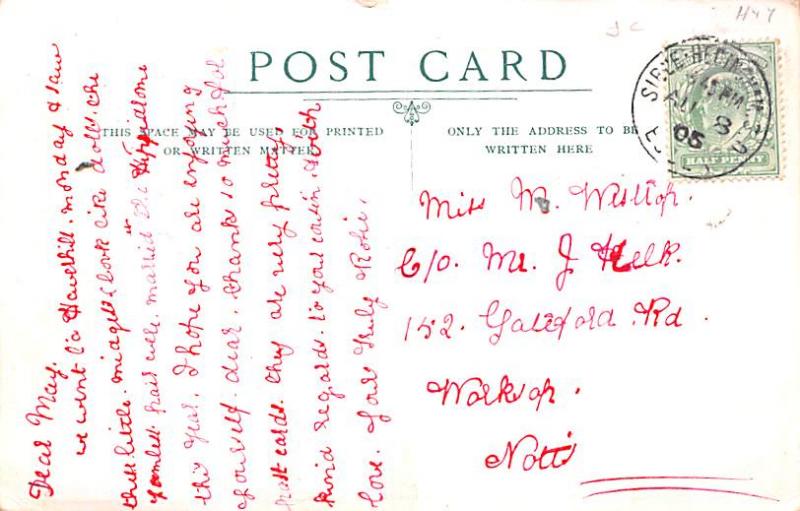 H47
POST CARD
THIS SPACE MAY BE USED FOR PRINTED
OR WRITTEN MATTER
ONLY THE ADDRESS TO BE
WRITTEN HERE
SIBLE-HEDINGHAM
AU 8
05
HALF PENNY
Dear May.
we went to Haverhill. monday & saw
these little midgets & look like dolls. the
smallest pair were married at the Hippodrome
this Year. I hope you are enjoying
yourself. dear. thanks so much for
post cards. they are very pretty
kind regards. to your cousin. with
love. Yours truly Rosie.
Miss M. Westrop.
C/o. Mr. J
152. Gateford Rd.
Worksop.
Notts